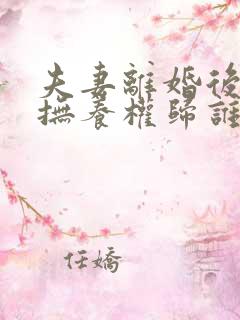 夫妻離婚後
撫養權歸誰
任嬌